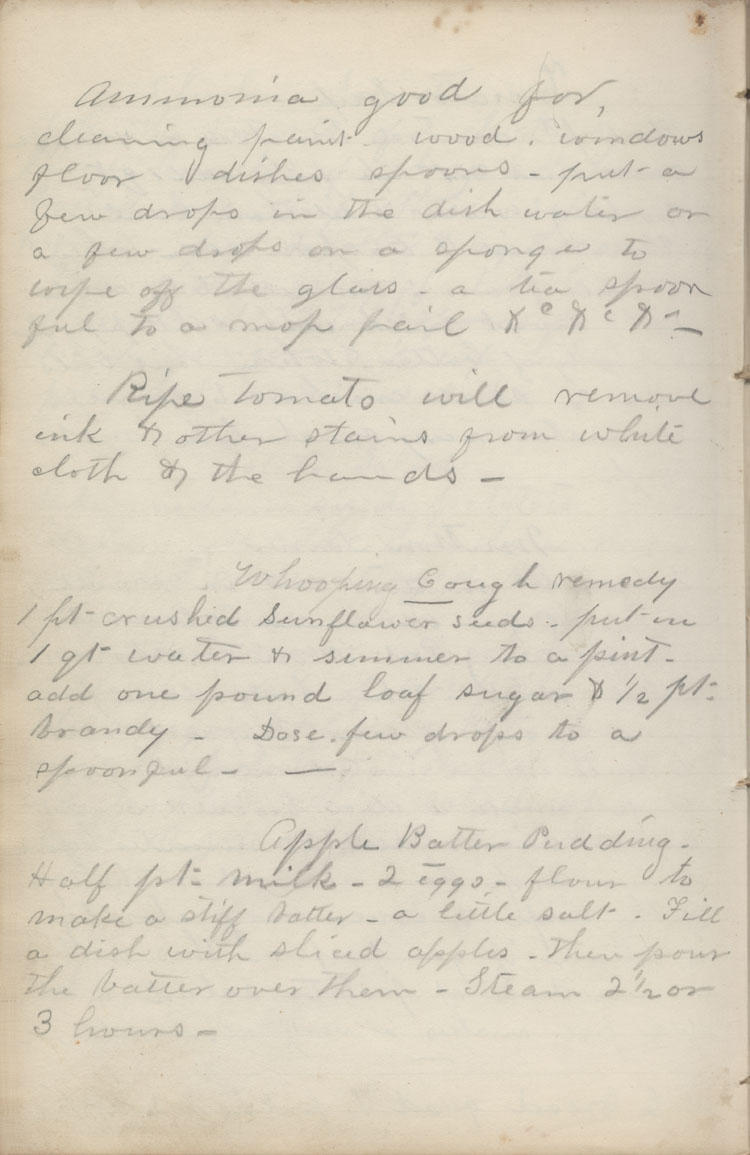 Ammonia good for,
cleaning paint - wood. windows
floor dishes spoons - put a
few drops in the dish water or
a few drops on a sponge to
wipe off the glass - a tea spoon
ful to a mop pail &c &c &c -
Ripe Tomato will remove
ink & other stains from white
cloth & the hands -
Whooping Cough remedy
1 pt crushed Sunflower seeds - put in
1 qt water & simmer to a pint -
add one pound loaf sugar & 1/2 pt -
brandy - Dose. few drops to a
spoonful -
Apple Batter Pudding -
Half pt - milk - 2 eggs - flour to
make a stiff batter - a little salt - Fill
a dish with sliced apples - then pour
the batter over them - Steam 2 1/2 or
3 hours -